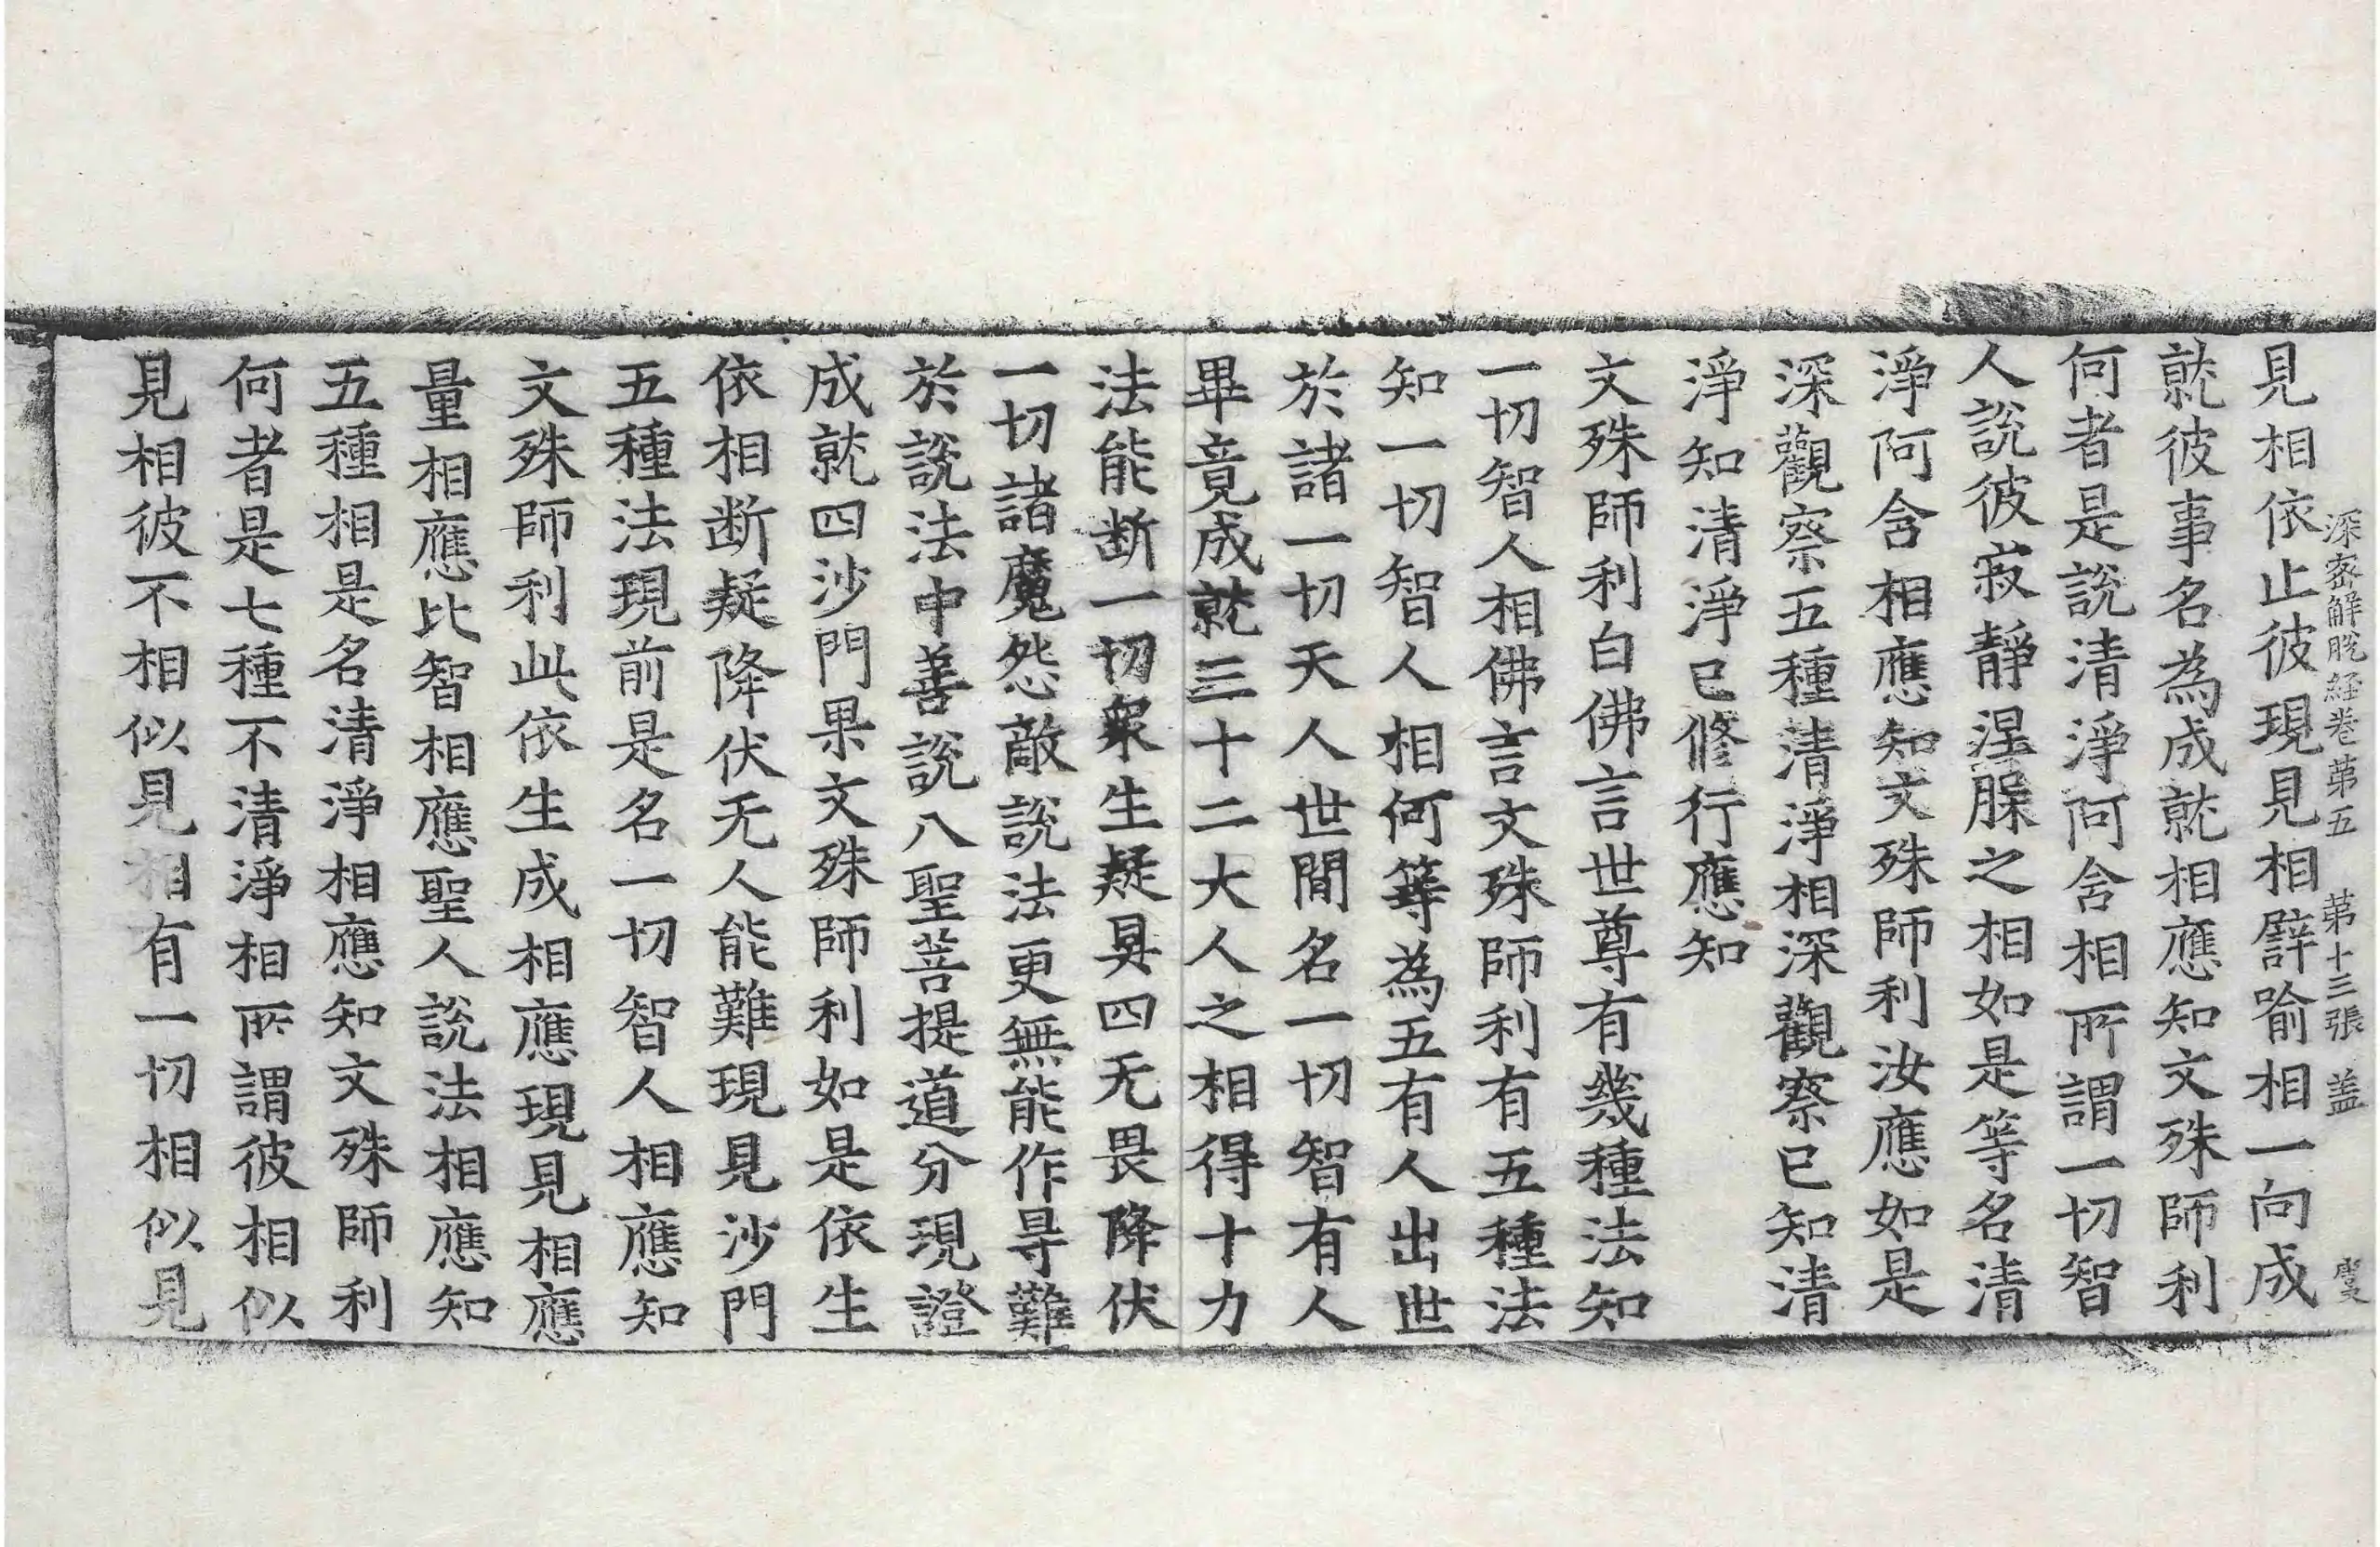 深密解脫経卷第五　第十三張　盖
見相依止彼現見相譬喻相一向成
就彼事名為成就相應知文殊師利
何者是說清淨阿含相所謂一切智
人說彼寂靜涅槃之相如是等名清
淨阿含相應知文殊師利汝應如是
深觀察五種清淨相深觀察已知清
淨知清淨已修行應知
文殊師利白佛言世尊有幾種法知
一切智人相佛言文殊師利有五種法
知一切智人相何等為五有人出世
於諸一切天人世間名一切智有人
畢竟成就三十二大人之相得十力
法能断一切衆生疑具四无畏降伏
一切諸魔怨敵說法更無能作㝵難
於說法中善說八聖菩提道分現證
成就四沙門果文殊師利如是依生
依相断疑降伏无人能難現見沙門
五種法現前是名一切智人相應知
文殊師利此依生成相應現見相應
量相應比智相應聖人說法相應知
五種相是名清淨相應知文殊師利
何者是七種不清淨相所謂彼相似
見相彼不相似見相有一切相似見